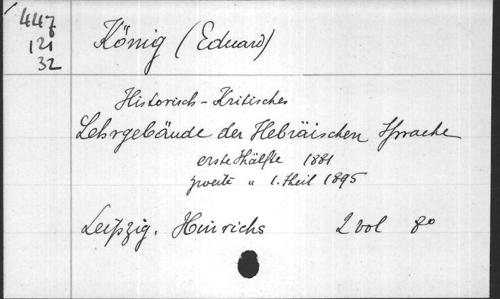 447
121
32
König (Eduard)
Historisch-Kritisches
Lehrgebäude der Hebräischen Sprache
erste Hälfte 1881
zweite " 1. Theil 1895
Leipzig, Hinrichs 2 vol 8o